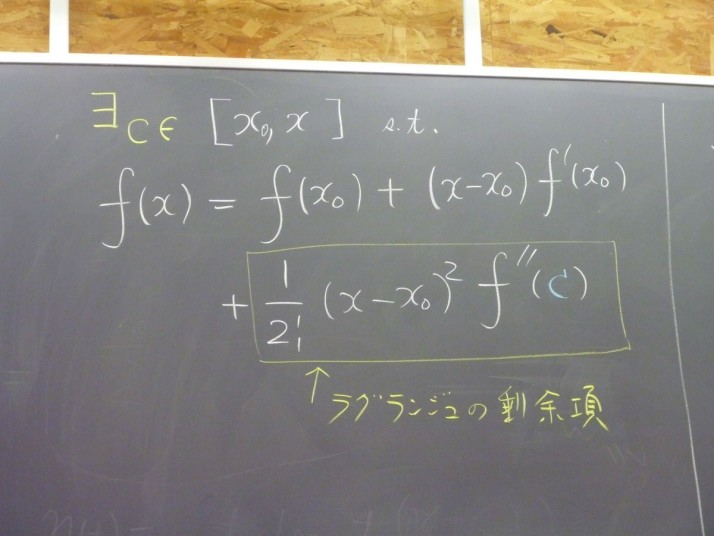 ∃c∈ [x₀, x] s.t.
f(x) = f(x₀) + (x-x₀) f'(x₀)
+ 1/2! (x-x₀)² f''(c)
↑ラグランジュの剰余項